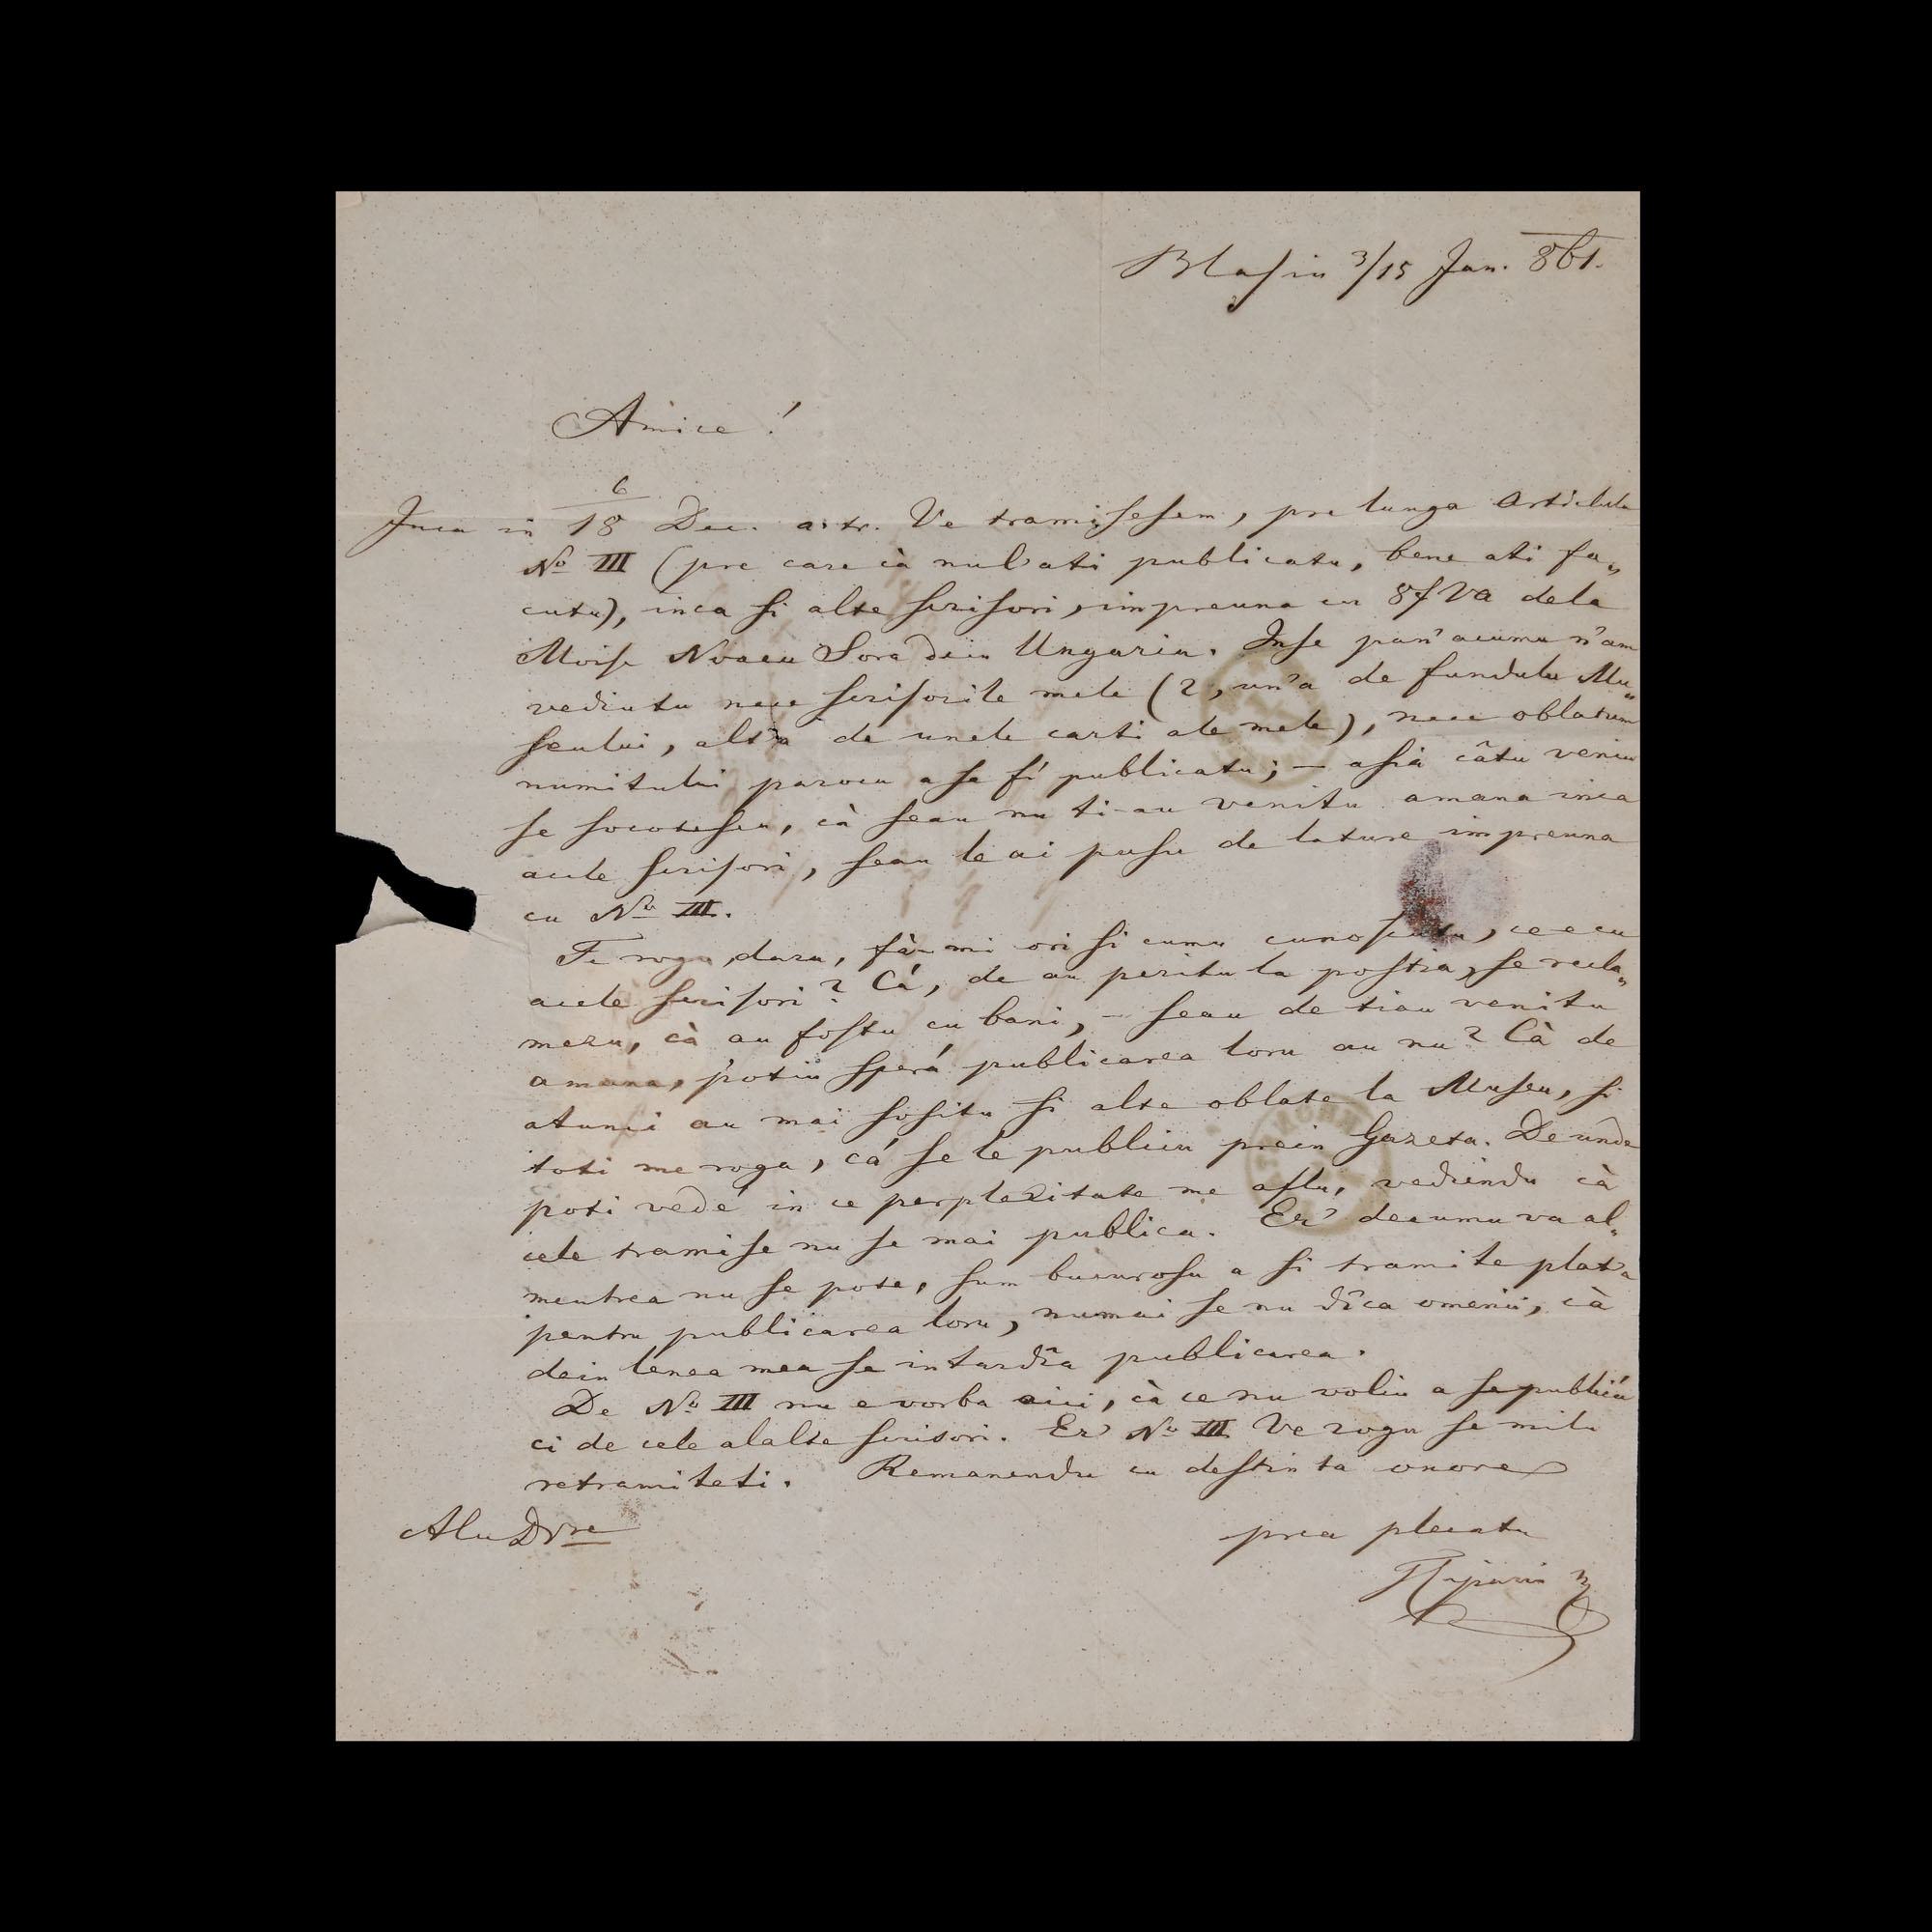 Blasiu 3/15 Jan. 861.
Amice!
Inca in 6/18 Dec. a. tr. Ve tramisesem, pre lunga Articlulu
No III (pre care cà nul'ati publicatu, bene ati fa„
cutu), inca si alte scrisori, impreuna cu 8f Va dela
Moise Novacu Sora dein Ungaria. Inse pan' acumu n'am
vediutu nece scrisorile mele (2, un'a de fundulu Mu„
seului, alt'a de unele carti ale mele), nece oblatum
numitului parocu a se fí publicatu; — asià cãtu veniu
se socotescu, cà seau nu ti-au venitu amana inca
acele scrisori, seau le ai pusu de lature impreuna
cu No III.
Te rogu, daru, fà-mi ori si cumu cunoscutu, ce e cu
acele scrisori? Cá, de au peritu la postia, se recla„
mezu, cà au fostu cu bani, — seau de tiau venitu
amana, potiu sperá publicarea loru au nu? Cà de
atunci au mai sositu si alte oblate la Museu, si
toti me roga, cá se le publicu prein Gazeta. De unde
poti vedé in ce perplexitate me aflu, vediendu cà
cele tramise nu se mai publica. Er' deacumu va al„
mentrea nu se pote, sum bucurosu a si tramite plat'a
pentru publicarea loru, numai se nu dîca omenii, cà
dein lenea mea se intardîa publicarea.
De No III nu e vorba aici, cà ce nu voliu a se publicá
ci de cele alalte scrisori. Er' No III Ve rogu se milu
retramiteti. Remanendu cu destinta onore
Alu DVre
prea plecatu
Cipariu